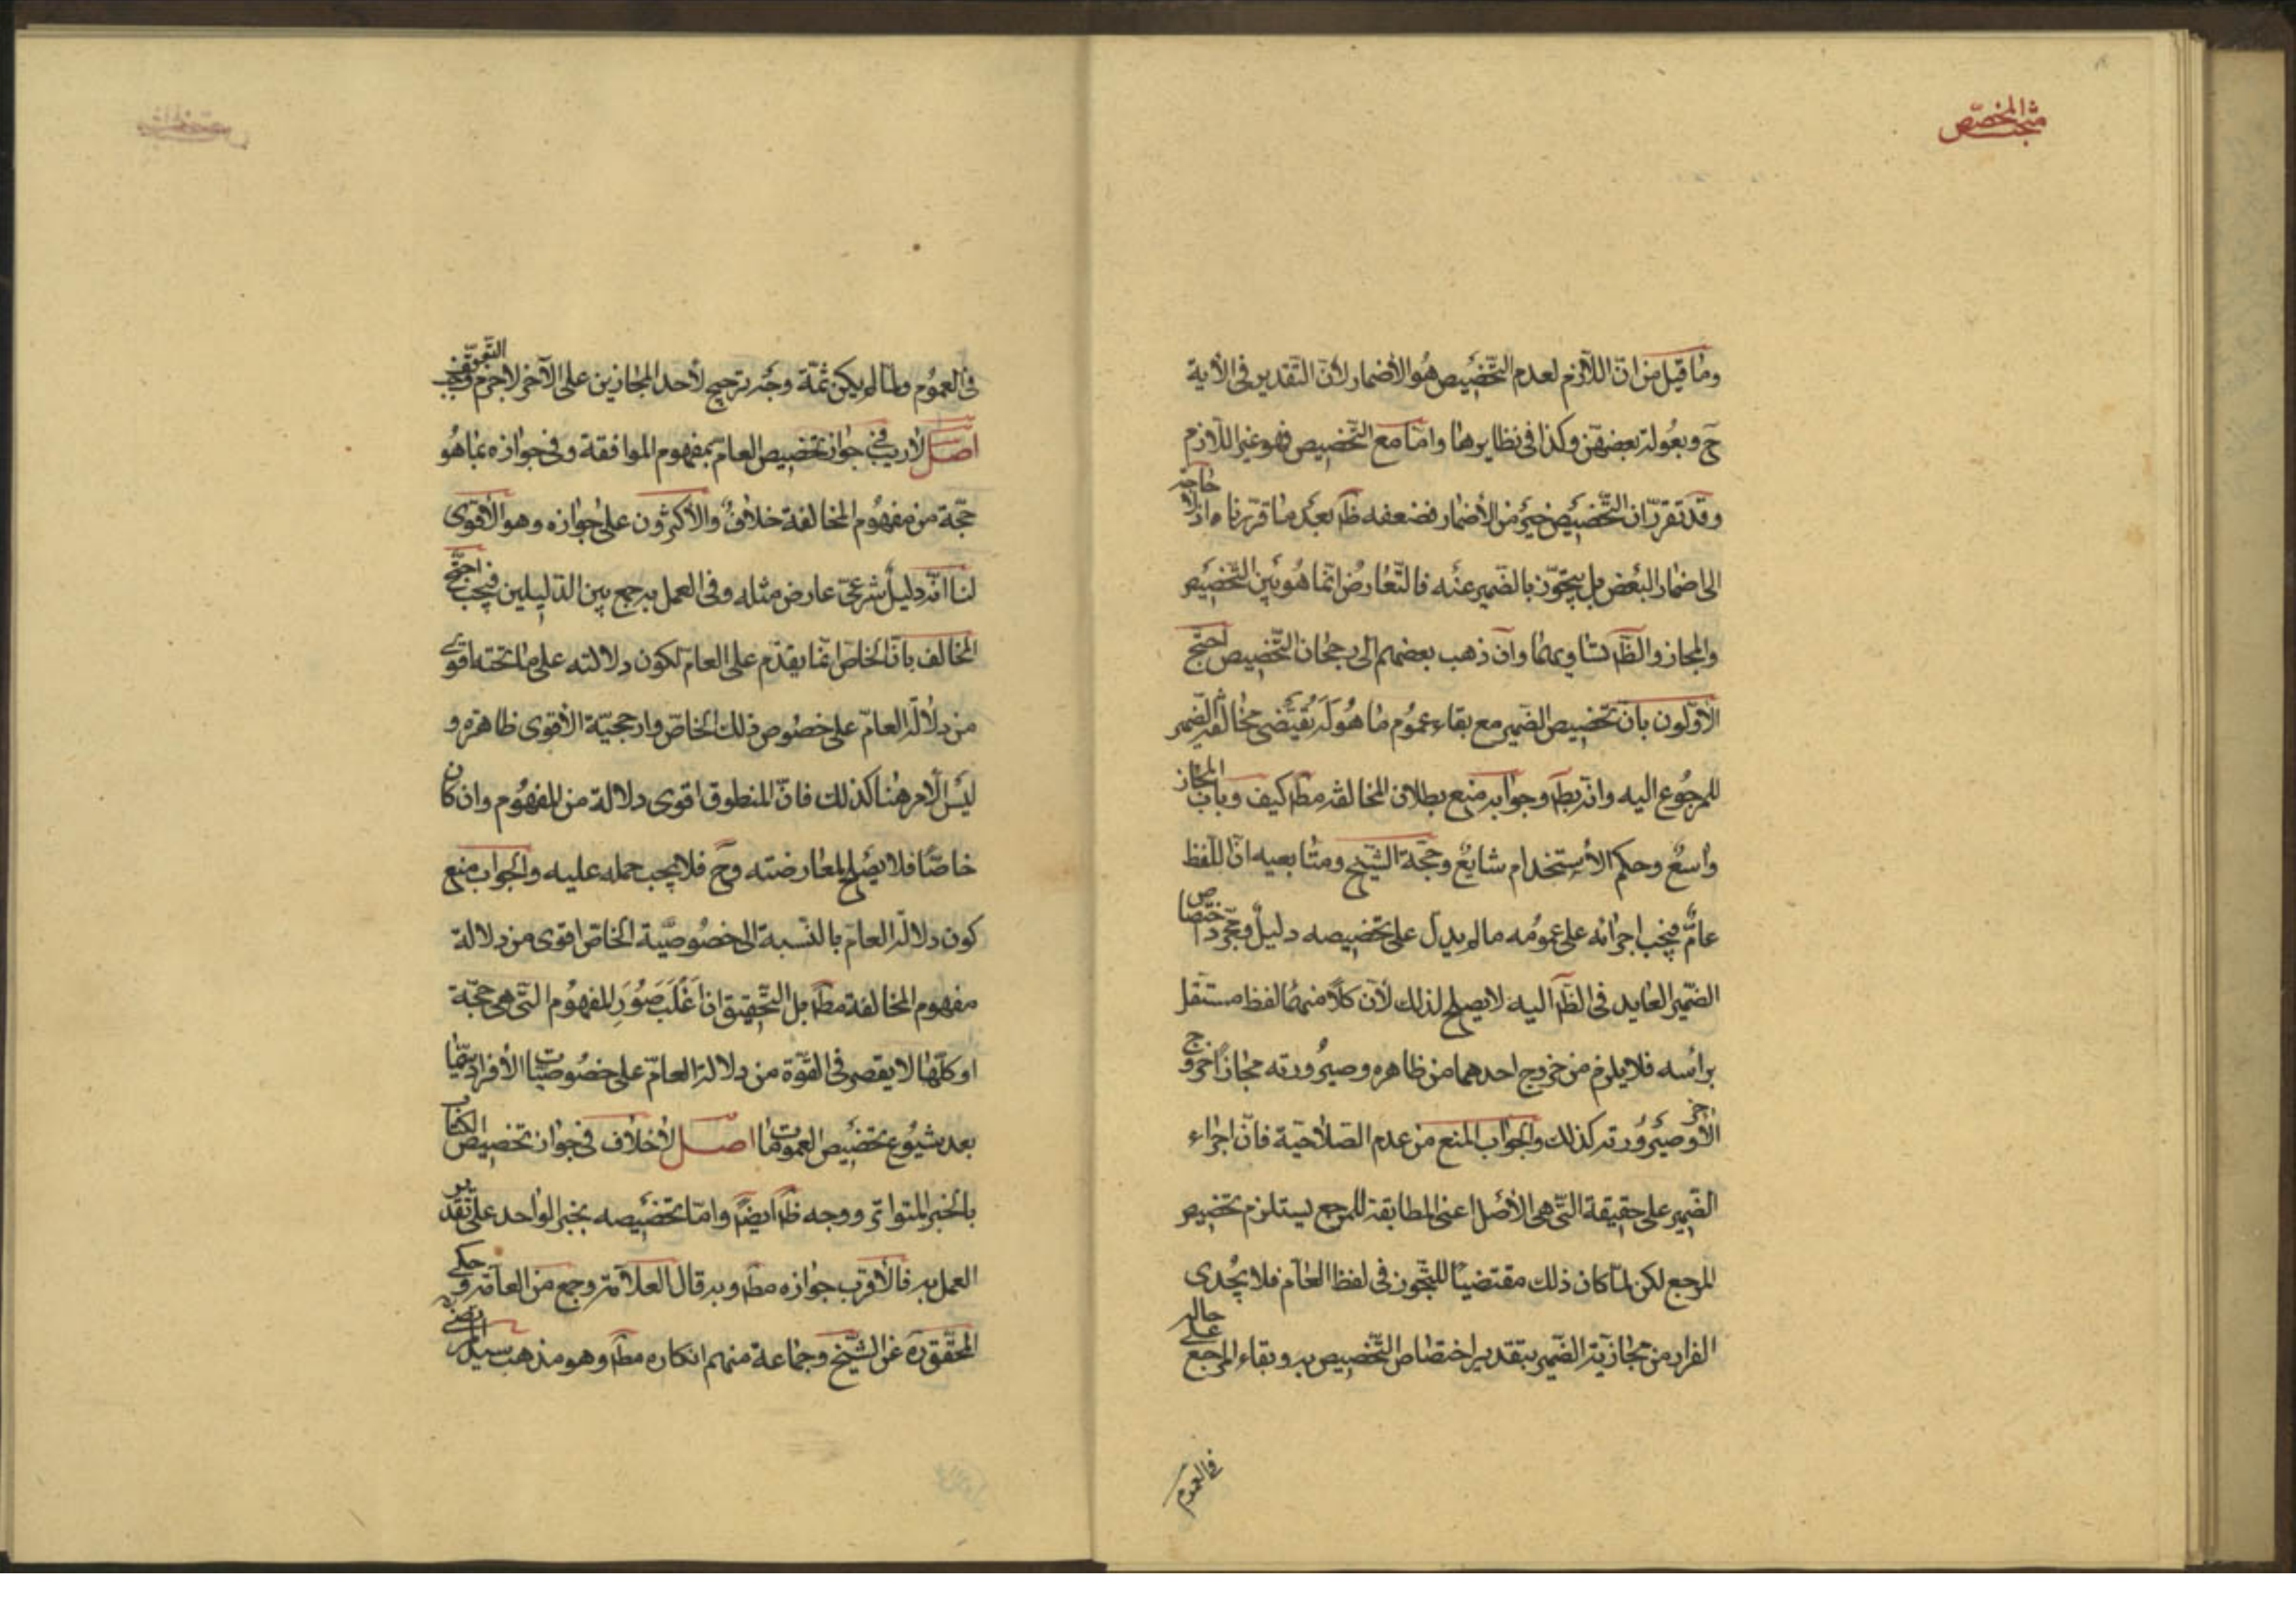 مبحث المخصّص
وما قيل من انّ اللّازم لعدم التّخصيص هو الأضمار لأنّ التّقدير فى الأية
ح وبعولة بعضهنّ وكذا فى نظايرها وامّا مع التّخصيص فهو غير اللّازم
وقد تقرّر ان التّخصيص خير من الأضمار فضعفه ظ بعد ما قرّرناه اذ لا حاجة
الى اضمار البعض بل يتجوّز بالضّمير عنه فالتّعارض انّما هو بين التّخصيص
والمجاز والظّ تساويهما وان ذهب بعضهم الى رجحان التّخصيص احتجّ
الأوّلون بان تخصيص الضّمير مع بقاء عموم ما هو له يقتضى مخالفة الضّمير
للمرجوع اليه وانّه بط وجوابه منع بطلان المخالفة مط كيف وباب المجاز
واسع وحكم الأستخدام شايع وحجّة الشّيخ ومتابعيه انّ اللّفظ
عامّ فيجب اجرائه على عمومه مالم يدلّ على تخصيصه دليل ومجرّد اختصاص
الضّمير العايد فى الظّ اليه لا يصلح لذلك لأن كلّا منهما لفظ مستقل
برأسه فلا يلزم من خروج احدهما من ظاهره وصيرورته مجازاً خروج
الأخر وصيرورته كذلك والجواب المنع من عدم الصّلاحيّة فانّ اجراء
الضّمير على حقيقة التّى هى الأصل اعنى المطابقة للمرجع ليستلزم تخصيص
المرجع لكن لمّا كان ذلك مقتضياً للتجّوز فى لفظ العامّ فلا يجدى
الفرار من مجازيّة الضّمير بتقدير اختصاص التّخصيص به وبقاء المرجع على حاله
فى العموم
فى العموم ولمّا لم يكن ثمّة وجه ترجيح لأحد المجازين على الأخر لاجرم وجب التّوقّف
اصل لاريب فى جواز تخصيص العامّ بمفهوم الموافقة وفى جوازه بما هو
حجّة من مفهوم المخالفة خلاف والأكثرون على جوازه وهو الأقوى
لنا انّه دليل شرعىّ عارض مثله وفى العمل به جمع بين الدّليلين فيجب احتجّ
المخالف بانّ الخاصّ انّما يقدّم على العامّ لكون دلالته على ما تحته اقوى
من دلالة العامّ على خصوص ذلك الخاصّ وارجحيّة الأقوى ظاهرة و
ليس الأمر هنا كذلك فانّ المنطوق اقوى دلالة من المفهوم وان كان
خاصّا فلا يصلح لمعارضته وح فلا يجب حمله عليه والجواب منع
كون دلالة العامّ بالنّسبة الى خصوصيّة الخاصّ اقوى من دلالة
مفهوم المخالفة مط بل التّحقيق انّ اغلب صور المفهوم التّى هى حجّة
او كلّها لا يقصر فى القوّة من دلالة العامّ على خصوصيّات الأفراد سيّما
بعد شيوع تخصيص العمومات اصل لا خلاف فى جواز تخصيص الكتاب
بالخبر المتواتر ووجه ظ ايضاً وامّا تخصيصه بخبر الواحد على تقدير
العمل به فالأقرب جوازه مط وبه قال العلّامة وجمع من العامّة وحكى
المحقّق ره عن الشّيخ وجماعة منهم انكاره مط وهو مذهب سيد المرتضى